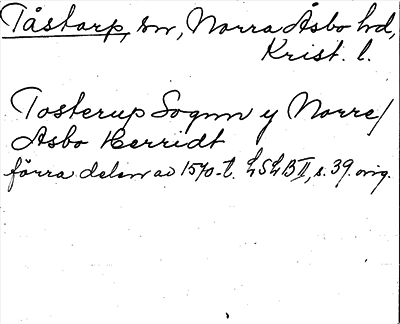 Tåstarp, sn, Norra Åsbo hd,
Krist. l.
Tosterup Sognn y Norre/
Asbo Herridt
förra delen av 1570-t. LSLB II, s. 39. orig.